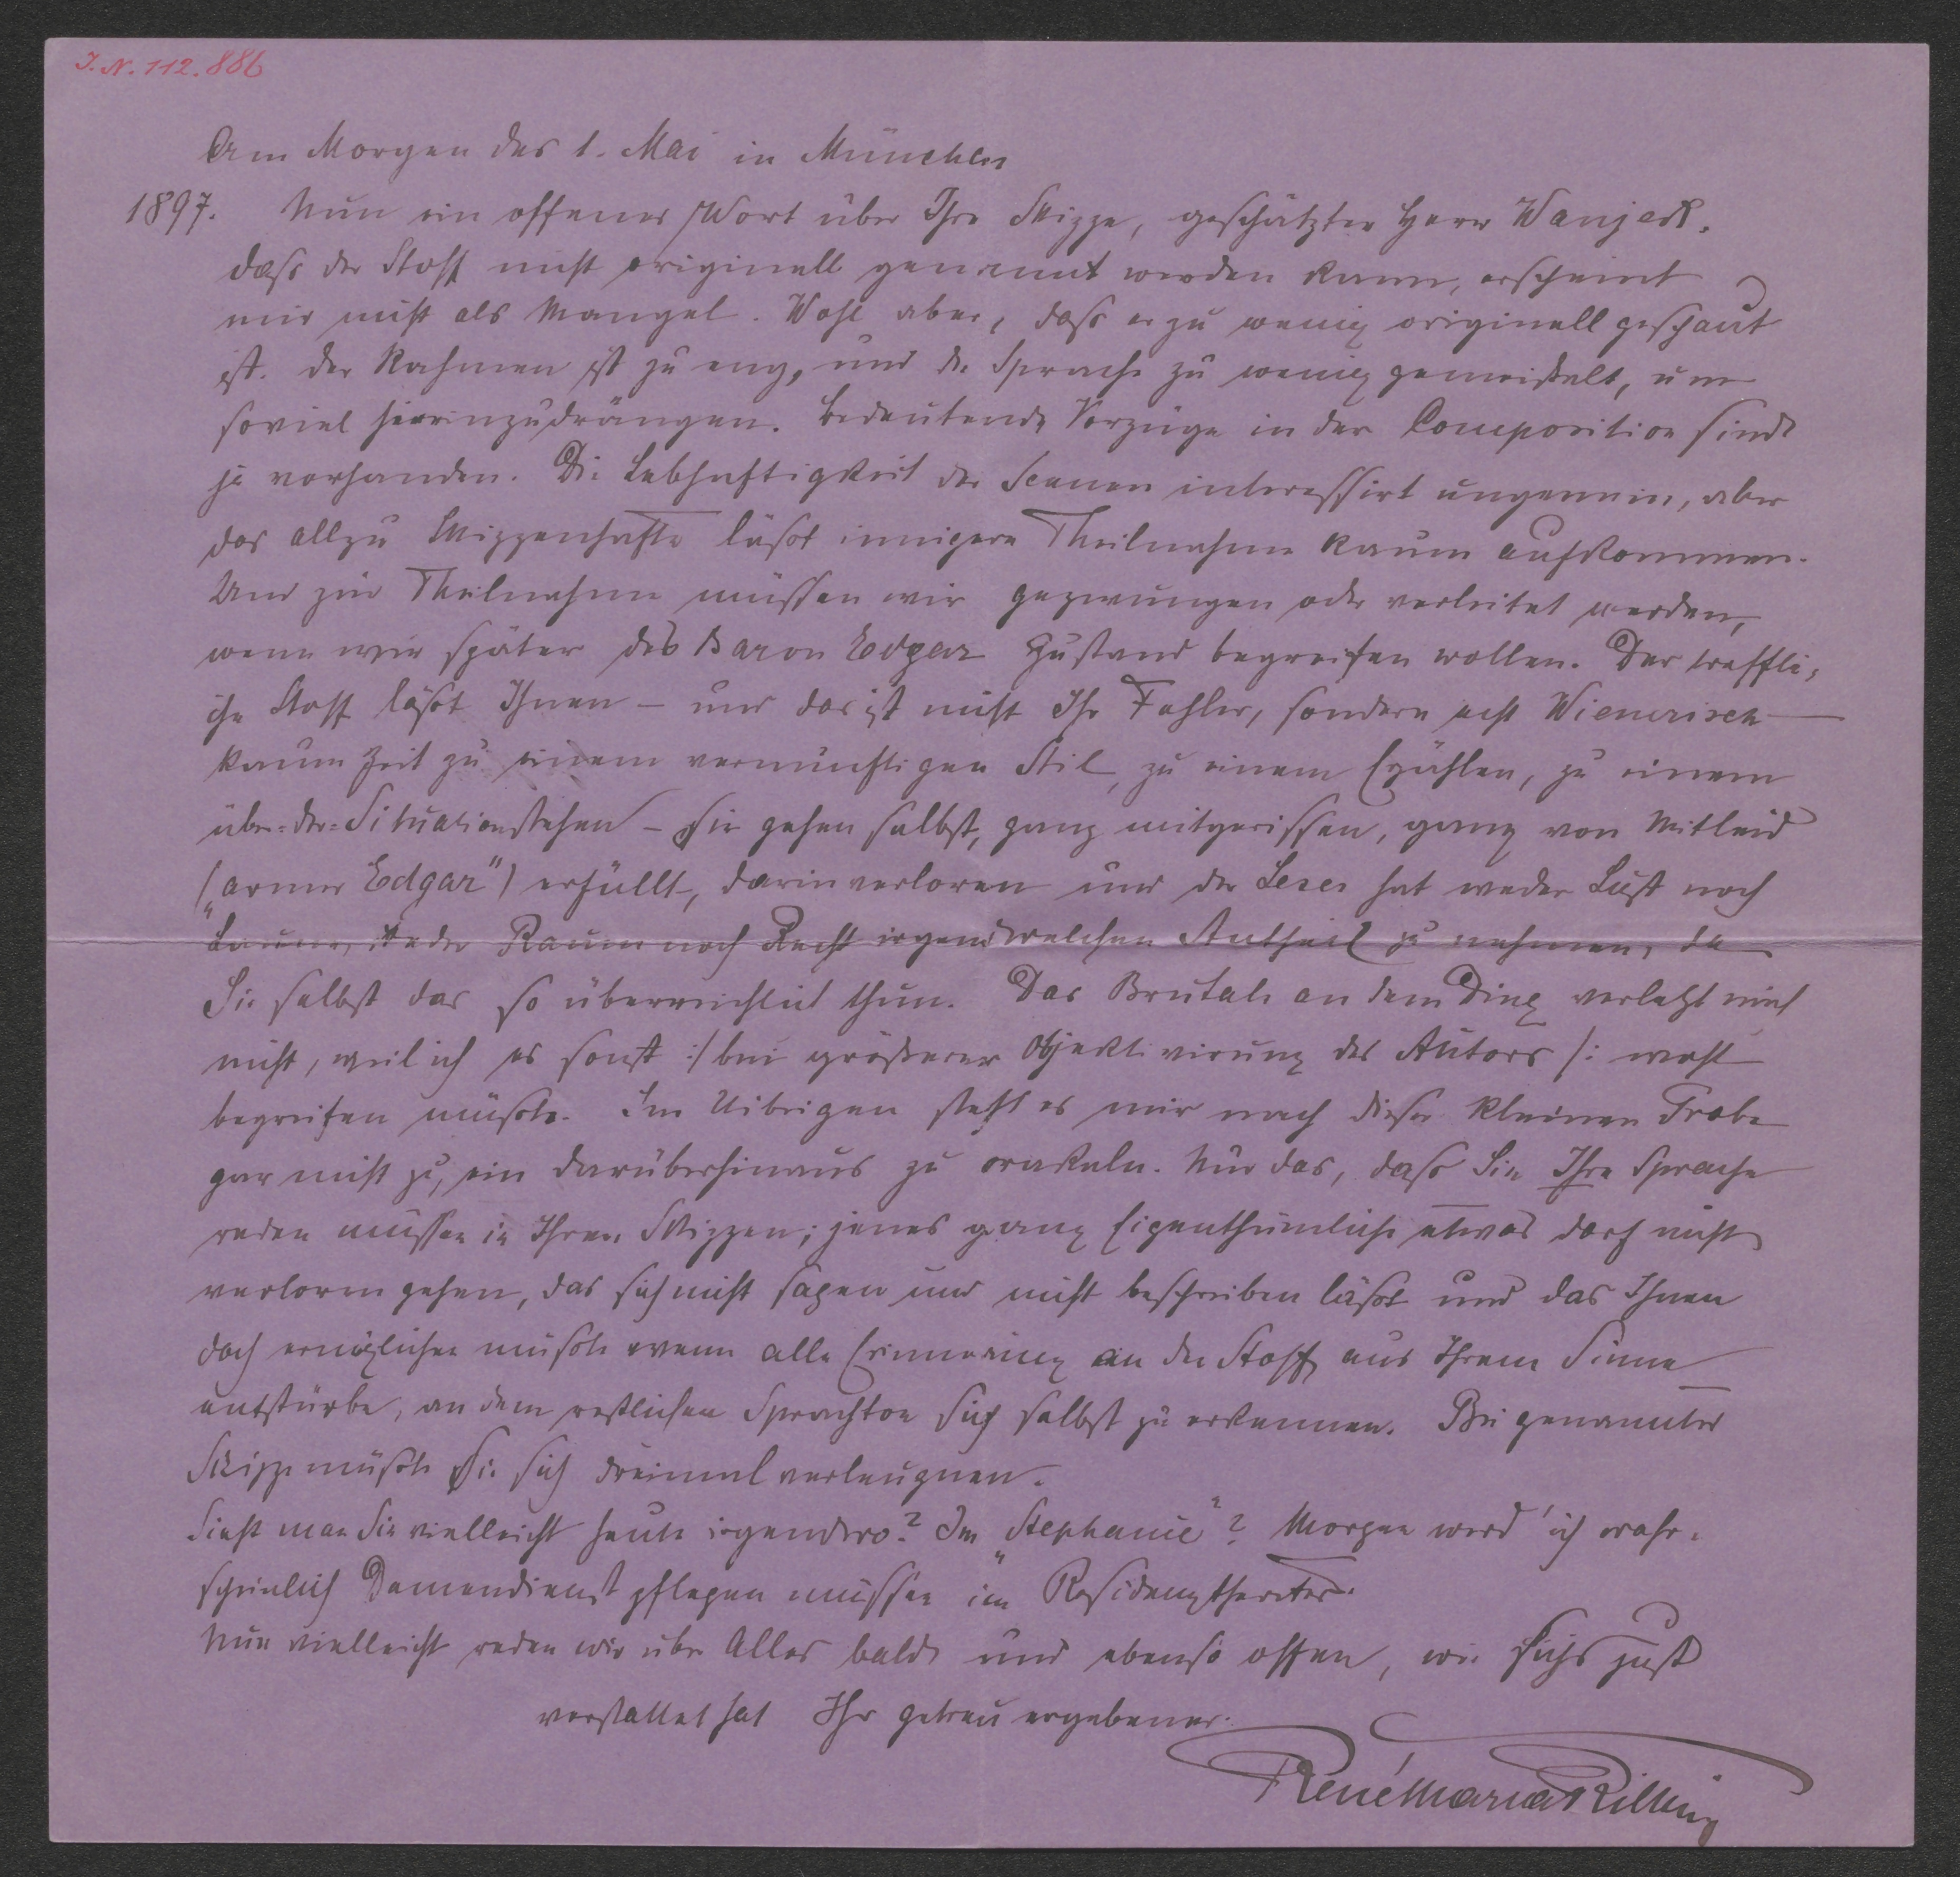 I. N. 112.886
Am Morgen des 1. Mai in München
1897. Nun ein offenes Wort über Ihre Skizze, geschätzter Herr Wanjek.
dass der Stoff nicht originell genannt werden kann, erscheint
mir nicht als Mangel. Wohl aber, dass er zu wenig originell geschaut
ist. der Rahmen ist zu eng, und die Sprache zu wenig gemeißelt, um
soviel hineinzudrängen. Bedeutende Vorzüge in der Composition sind
ja vorhanden. Die Lebhaftigkeit der Scenen interessirt ungemein, aber
das allzu Skizzenhafte läßt innigere Theilnahme kaum aufkommen.
Und zur Theilnahme müssen wir gezwungen oder verleitet werden,
wenn wir später des Baron Edgar Zustand begreifen wollen. Der treffli-
che Stoff läßt Ihnen – und das ist nicht Ihr Fehler, sondern echt Wienerisch –
kaum Zeit zu einem vernünftigen Stil, zu einem Erzählen, zu einem
über-der-Situationstehen – Sie gehen selbst, ganz mitgerissen, ganz von Mitleid
(„armer Edgar") erfüllt, darin verloren und der Leser hat weder Lust noch
Laune, weder Raum noch Recht irgendwelchen Antheil zu nehmen, da
Sie selbst das so überreichlich thun. Das Brutale an dem Ding verletzt mich
nicht, weil ich es sonst :/ bei größerer Objektivirung des Autors /: wohl
begreifen müßte. Im Uibrigen steht es mir nach dieser kleinen Probe
gar nicht zu, ein darüberhinaus zu orakeln. Nur das, dass Sie Ihre Sprache
reden müssen in Ihren Skizzen; jenes ganz Eigenthümliche etwas darf nicht
verloren gehen, das sich nicht sagen und nicht beschreiben läßt und das Ihnen
doch ermöglichen müßte wenn alle Erinnerung an den Stoff aus Ihrem Sinne
entstürbe, an dem restlichen Sprachton sich selbst zu erkennen. Bei genannter
Skizze müßten Sie sich dreimal verleugnen.
Sieht man Sie vielleicht heute irgendwo? Im „Stephanie"? Morgen werd' ich wahr-
scheinlich Damendienst pflegen müssen im Residenztheater.
Nun vielleicht reden wir über Alles bald und ebenso offen, wie sichs just
verstattet hat Ihr getreu ergebener:
René Maria Rilke